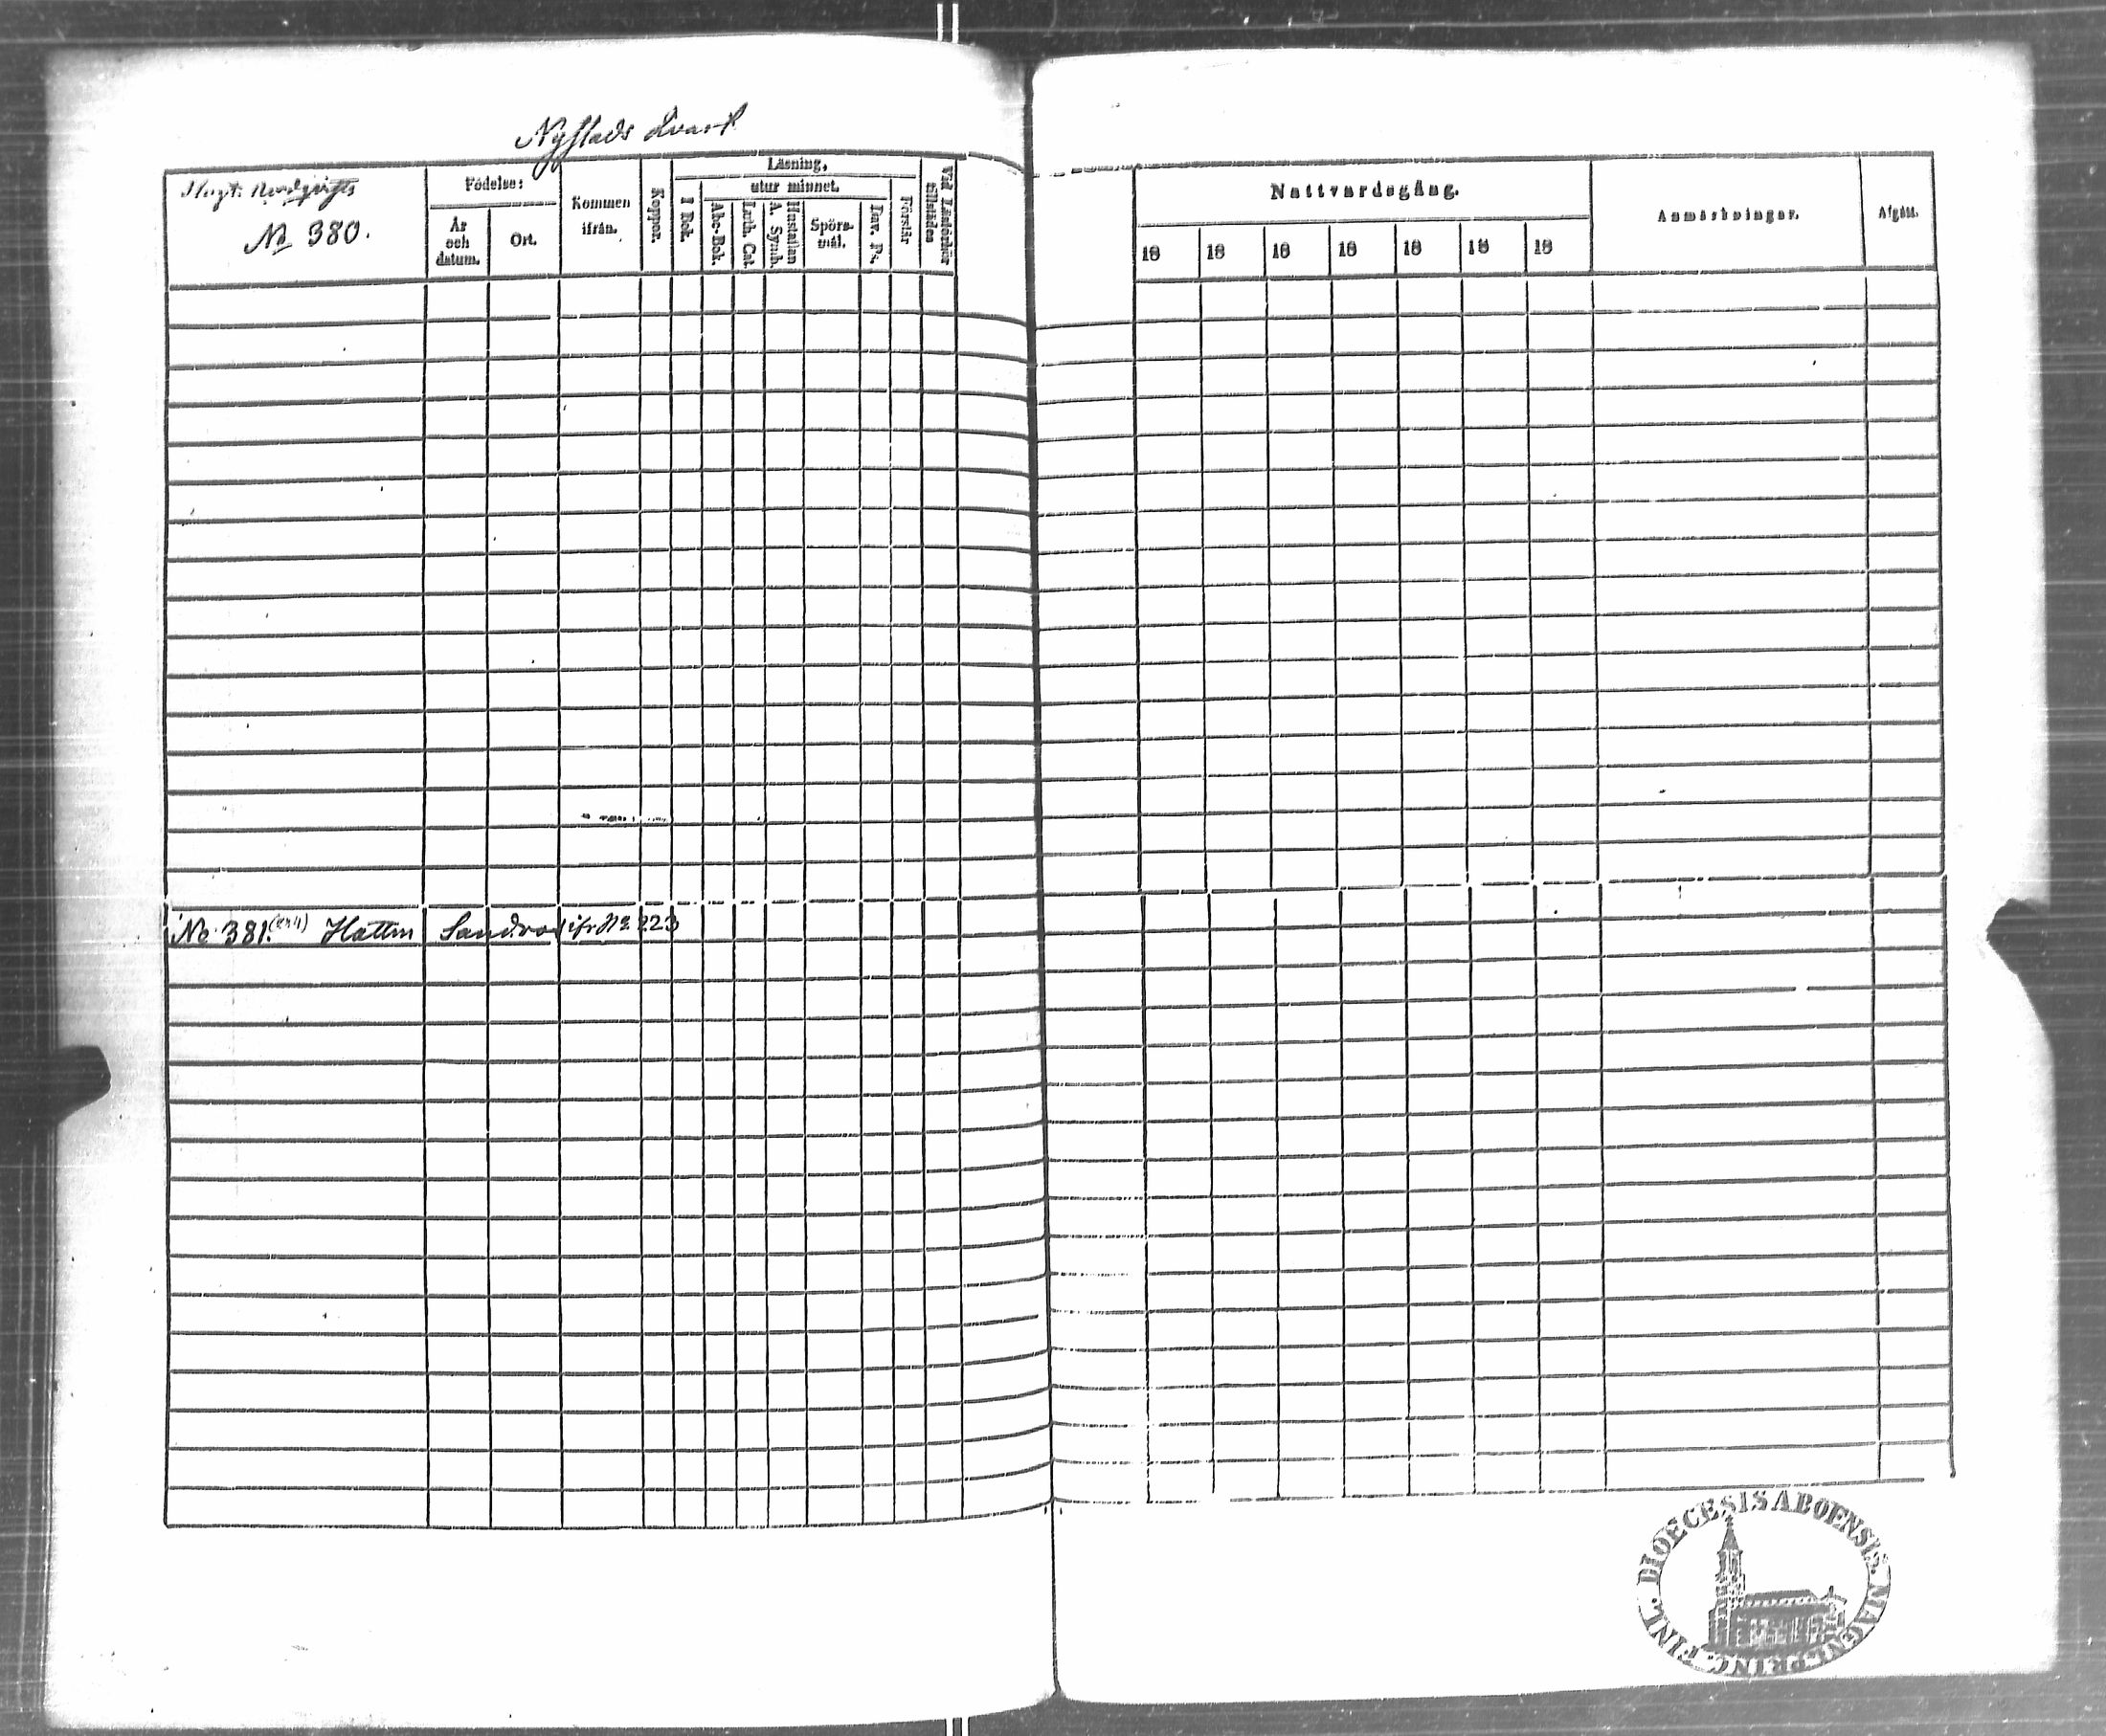 Nystads
Nº 380.
Födelse:
År
och
datum.
Ort.
Kommen
ifrån.
Koppor.
Läsning.
I Bok.
utur minnet.
Abc-Bok.
Luth. Cat.
Hustaflan
A. Symb.
Spörs-
mål.
Dav. Ps.
Förstår
Vid Läsförhör
tillstädes
Nattvardsgång.
18 18 18 18 18 18 18
Anmärkningar.
Afgått.
No 381. Hattm Sandros ifr Nº 223
DIOECESIS ABOENSIS. MAGNI. PRINC. FINL.